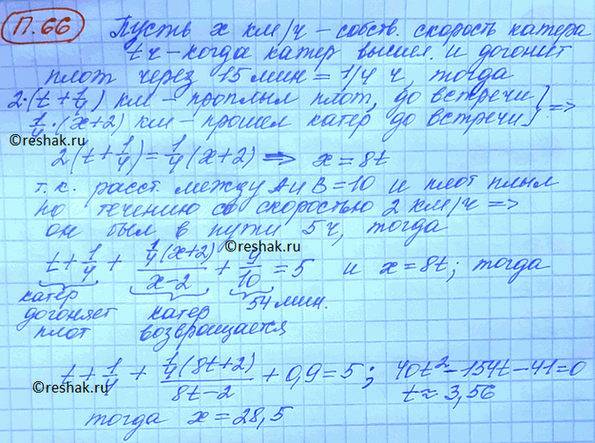 П.66
Пусть x км/ч – собств. скорость катера
t ч – когда катер вышел и догонит
плот через 15 мин = 1/4 ч, тогда
2·(t+1/4) км – проплыл плот, до встречи
1/4·(x+2) км – прошел катер до встречи } =>
©reshak.ru
2(t+1/4)=1/4(x+2) => x=8t
т.к. расст. между A и B =10 и плот плыл
по течению со скоростью 2 км/ч =>
он был в пути 5ч, тогда
©reshak.ru
t+1/4 + 1/4(x+2)/(x-2) + 9/10 = 5 и x=8t; тогда
катер догоняет плот
катер возвращается
54 мин.
t+1/4 + 1/4(8t+2)/(8t-2) + 0,9=5; 40t²-154t-41=0
©reshak.ru
t≈3,56
тогда x=28,5